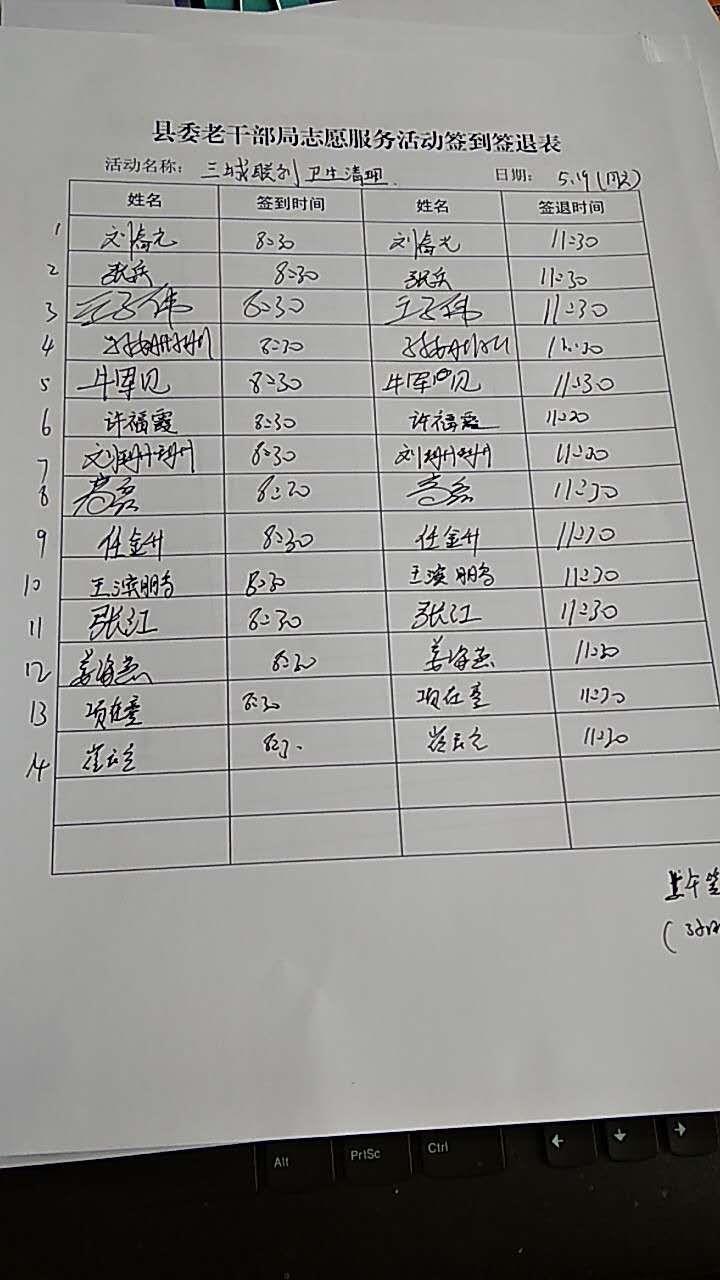 县委老干部局志愿服务活动签到签退表
活动名称： 三城联创 卫生清理 日期： 5.19(周五)
姓名 签到时间 姓名 签退时间
1 8:30 11:30
2 张兵 8:30 张兵 11:30
3 王子伟 8:30 王子伟 11:30
4 8:30 11:30
5 牛军见 8:30 牛军见 11:30
6 许福霞 8:30 许福霞 11:30
7 刘珊珊 8:30 刘珊珊 11:30
8 8:30 11:30
9 任金升 8:30 任金升 11:30
10 王滨鹏 8:30 王滨鹏 11:30
11 张江 8:30 张江 11:30
12 姜海燕 8:30 姜海燕 11:30
13 项在奎 8:30 项在奎 11:30
14 8:30 11:30
上午
Alt PrtSc Ctrl